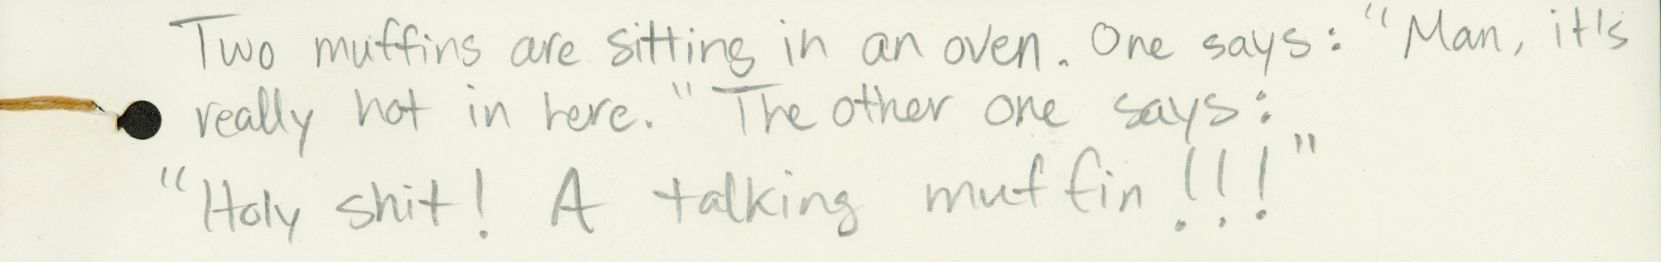 Two muffins are sitting in an oven. One says: "Man, it's
really hot in here." The other one says:
"Holy shit! A talking muffin!!!"